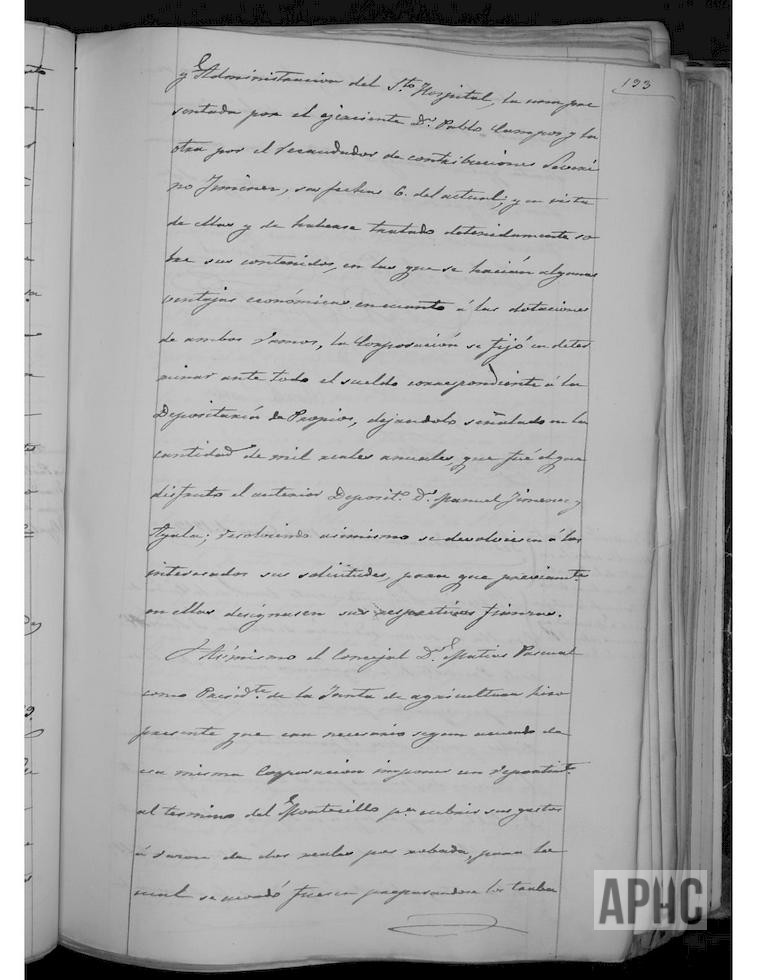 133
y Administracion del Sto Hospital, la una pre
sentada por el ejerciente Dn. Pablo Campos y la
otra por el recaudador de contribuciones Severi
no Jimenez, sus fechas 6. del actual; y en vista
de ellas y de haberse tratado detenidamente so
bre sus contenidos, en las que se hacian algunas
ventajas económicas en cuanto á las dotaciones
de ambos ramos, la Corporación se fijó en deter
minar ante todo el sueldo correspondiente á la
Depositaría de Propios, dejandolo señalado en la
cantidad de mil reales anuales, que fué el que
disfrutó el anterior Deposito. Dn. Manuel Jimenez y
Ayala; resolviendo asimismo se devolviesen á los
interesados sus solicitudes, para que previamte.
en ellas designasen sus respectivas fianzas.
Asimismo el Concejal Dn. Matias Pascual
como Presidte. de la Junta de agricultura hizo
presente que era necesario segun acuerdo de
esa misma Corporación imponer un repartimto.
al termino del Montecillo pa. cubrir sus gastos
á razon de dos reales por robada, para lo
cual se acordó fuesen preparandose los traba
APHC